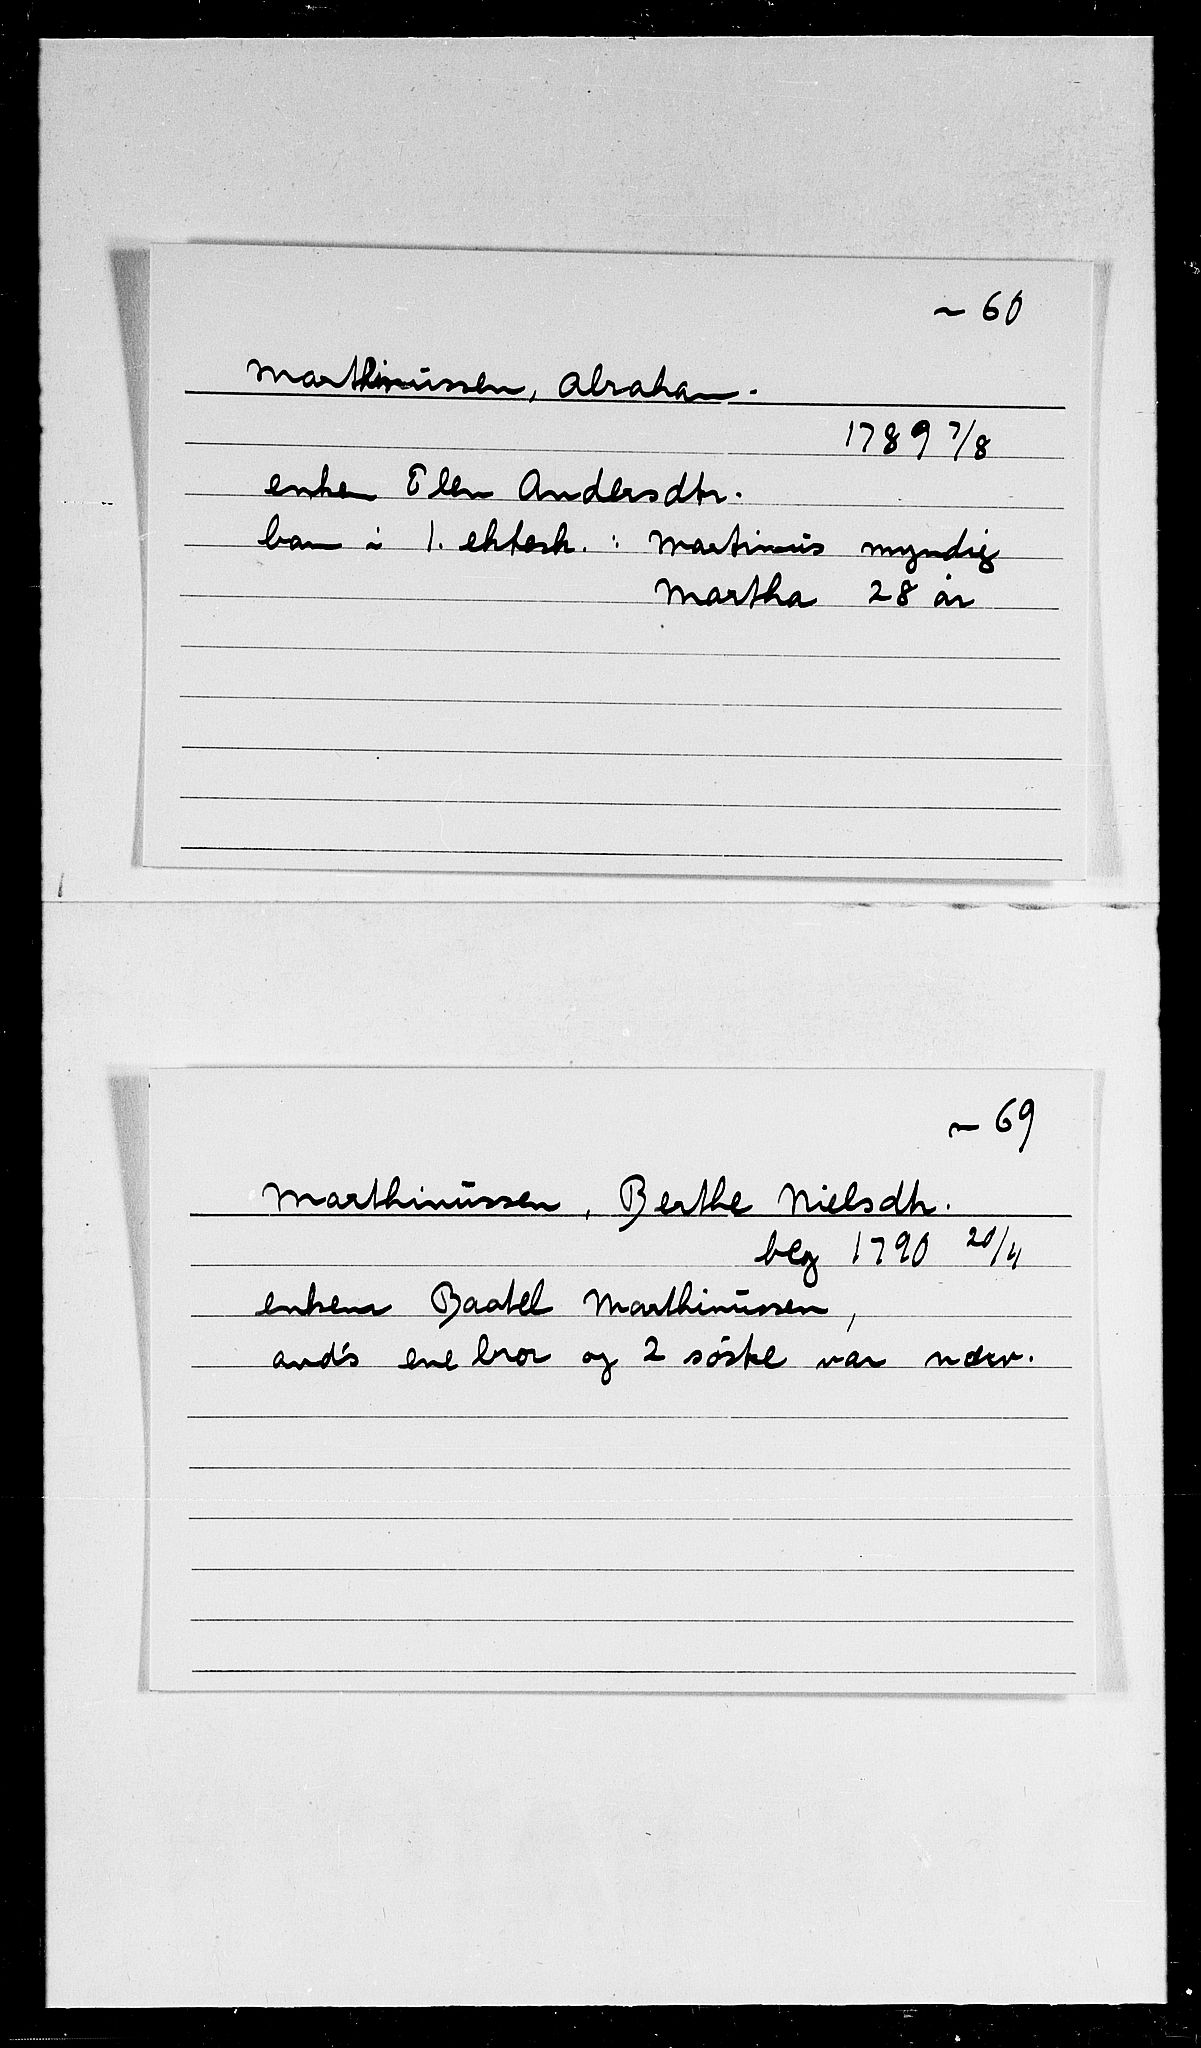 ~ 60
Marthinussen, Abraham.
1789 7/8
enken Elen Andersdtr.
barn i 1. ektesk. : Martinus myndig
Martha 28 år
~ 69
Marthinussen, Berthe Nielsdtr.
beg 1790 20/4
enkem Baatel Marthinussen,
avd's ene bror og 2 søstre var nærv.